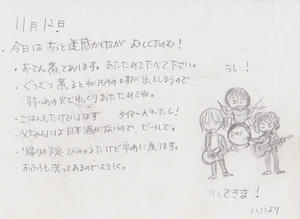 11月12日
・今日はちょっと迷惑かけるが よろしくたのむ！
・おでん煮てあります。あたためてたべて下さい。
ぐつぐつ煮るとねりものの味が出てしまうので
弱い火でゆっくりあたためてね。
・ごはんもたけているはず タイマー入れたし！
・父ちゃんには日本酒がないので、ビールで。
・帰りの予定 びみょうだけど早めに戻ります。
・おふろも洗ってあるのでよろしく。
行ってきます！
ハハより